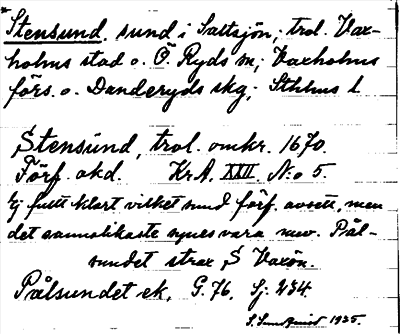 Stensund, sund i Saltsjön; trol. Vax-
holms stad o. Ö. Ryds sn; Vaxholms
förs. o. Danderyds skg; Sthlms l
Stensund, trol. omkr. 1670.
Förf. okd. Kr.A. XXII. N:o 5.
Ej fullt klart vilket sund förf. avsett, men
det sannolikaste synes vara nuv. Pål-
sundet strax S Vaxön.
Pålsundet ek. G. 76. Sj. 234.
S. Sundquist 1935.